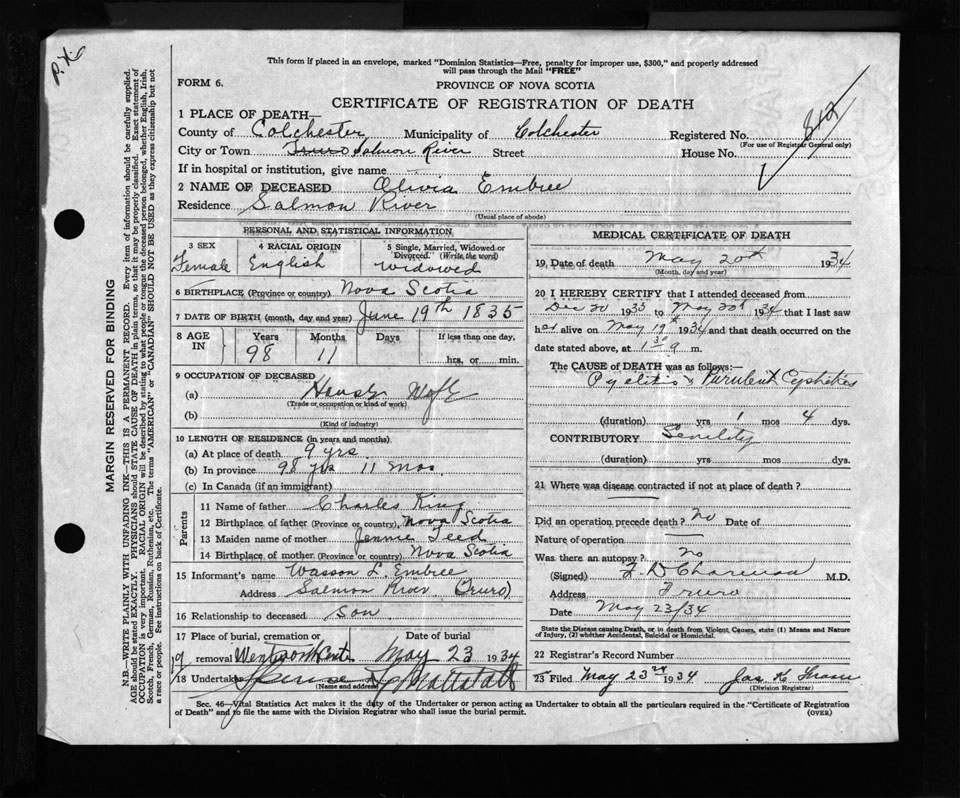 P.H.6
This form if placed in an envelope, marked "Dominion Statistics—Free, penalty for improper use, $300," and properly addressed
will pass through the Mail "FREE"
FORM 6.
PROVINCE OF NOVA SCOTIA
CERTIFICATE OF REGISTRATION OF DEATH
1 PLACE OF DEATH—
County of Colchester Municipality of Colchester Registered No.
(For use of Registrar General only)
City or Town Truro Salmon River Street House No.
If in hospital or institution, give name
2 NAME OF DECEASED Olivia Embree
Residence Salmon River
(Usual place of abode)
PERSONAL AND STATISTICAL INFORMATION
3 SEX 4 RACIAL ORIGIN 5 Single, Married, Widowed or
Divorced. (Write the word)
Female English Widowed
6 BIRTHPLACE (Province or country) Nova Scotia
7 DATE OF BIRTH (month, day and year) June 19th 1835
8 AGE IN Years Months Days If less than one day,
98 11 hrs. or min.
9 OCCUPATION OF DECEASED
(a) House Wife
(Trade or occupation or kind of work)
(b)
(Kind of industry)
10 LENGTH OF RESIDENCE (in years and months).
(a) At place of death 9 yrs.
(b) In province 98 yrs 11 mos.
(c) In Canada (if an immigrant)
Parents
11 Name of father Charles King
12 Birthplace of father (Province or country) Nova Scotia
13 Maiden name of mother Jennie Teed
14 Birthplace of mother (Province or country) Nova Scotia
15 Informant's name Wasson L. Embree
Address Salmon River (Truro)
16 Relationship to deceased Son
17 Place of burial, cremation or Date of burial
removal Wentworth Cente. May 23 1934
18 Undertaker
(Name and address)
MEDICAL CERTIFICATE OF DEATH
19 Date of death May 20th 1934
(Month, day and year)
20 I HEREBY CERTIFY that I attended deceased from
Dec 20 1933 to May 20th 1934 that I last saw
her alive on May 19 1934 and that death occurred on
date stated above, at 1 30 a m.
The CAUSE of DEATH was as follows:—
Pyelitis & Purulent Cystitis
(duration) yrs 1 mos 4 dys.
CONTRIBUTORY Senility
(duration) yrs. mos. dys.
21 Where was disease contracted if not at place of death?
Did an operation precede death? No Date of
Nature of operation
Was there an autopsy? No
(Signed) M.D.
Address Truro
Date May 23/34
State the Disease causing Death, or in death from Violent Causes, state (1) Means and Nature
of Injury, (2) whether Accidental, Suicidal or Homicidal.
22 Registrar's Record Number
23 Filed May 23rd 1934
(Division Registrar)
Sec. 46—Vital Statistics Act makes it the duty of the Undertaker or person acting as Undertaker to obtain all the particulars required in the "Certificate of Registration
of Death" and to file the same with the Division Registrar who shall issue the burial permit. (OVER)
MARGIN RESERVED FOR BINDING
N.B.—WRITE PLAINLY WITH UNFADING INK—THIS IS A PERMANENT RECORD. Every item of information should be carefully supplied.
AGE should be stated EXACTLY. PHYSICIANS should STATE CAUSE OF DEATH in plain terms, so that it may be properly classified. Exact statement of
OCCUPATION is very important. RACIAL ORIGIN will be described by stating to what people or tongue the deceased person belonged, whether English, Irish,
Scotch, French, German, Russian, Ruthenian, etc. The terms "AMERICAN" or "CANADIAN" SHOULD NOT BE USED as they express citizenship but not
a race or people. See instructions on back of Certificate.